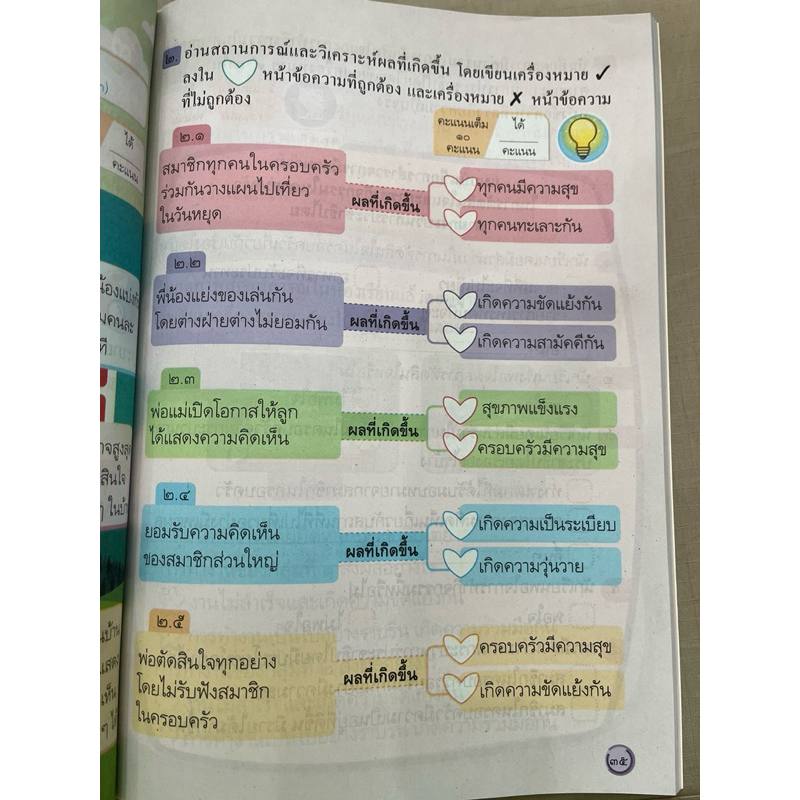 ๒. อ่านสถานการณ์และวิเคราะห์ผลที่เกิดขึ้น โดยเขียนเครื่องหมาย ✓
ลงใน หน้าข้อความที่ถูกต้อง และเครื่องหมาย ✗ หน้าข้อความ
ที่ไม่ถูกต้อง
คะแนนเต็ม
๑๐
คะแนน
ได้
คะแนน
๒.๑
สมาชิกทุกคนในครอบครัว
ร่วมกันวางแผนไปเที่ยว
ในวันหยุด
ผลที่เกิดขึ้น
ทุกคนมีความสุข
ทุกคนทะเลาะกัน
๒.๒
พี่น้องแย่งของเล่นกัน
โดยต่างฝ่ายต่างไม่ยอมกัน
ผลที่เกิดขึ้น
เกิดความขัดแย้งกัน
เกิดความสามัคคีกัน
๒.๓
พ่อแม่เปิดโอกาสให้ลูก
ได้แสดงความคิดเห็น
ผลที่เกิดขึ้น
สุขภาพแข็งแรง
ครอบครัวมีความสุข
๒.๔
ยอมรับความคิดเห็น
ของสมาชิกส่วนใหญ่
ผลที่เกิดขึ้น
เกิดความเป็นระเบียบ
เกิดความวุ่นวาย
๒.๕
พ่อตัดสินใจทุกอย่าง
โดยไม่รับฟังสมาชิก
ในครอบครัว
ผลที่เกิดขึ้น
ครอบครัวมีความสุข
เกิดความขัดแย้งกัน
๓๕
ได้
คะแนน